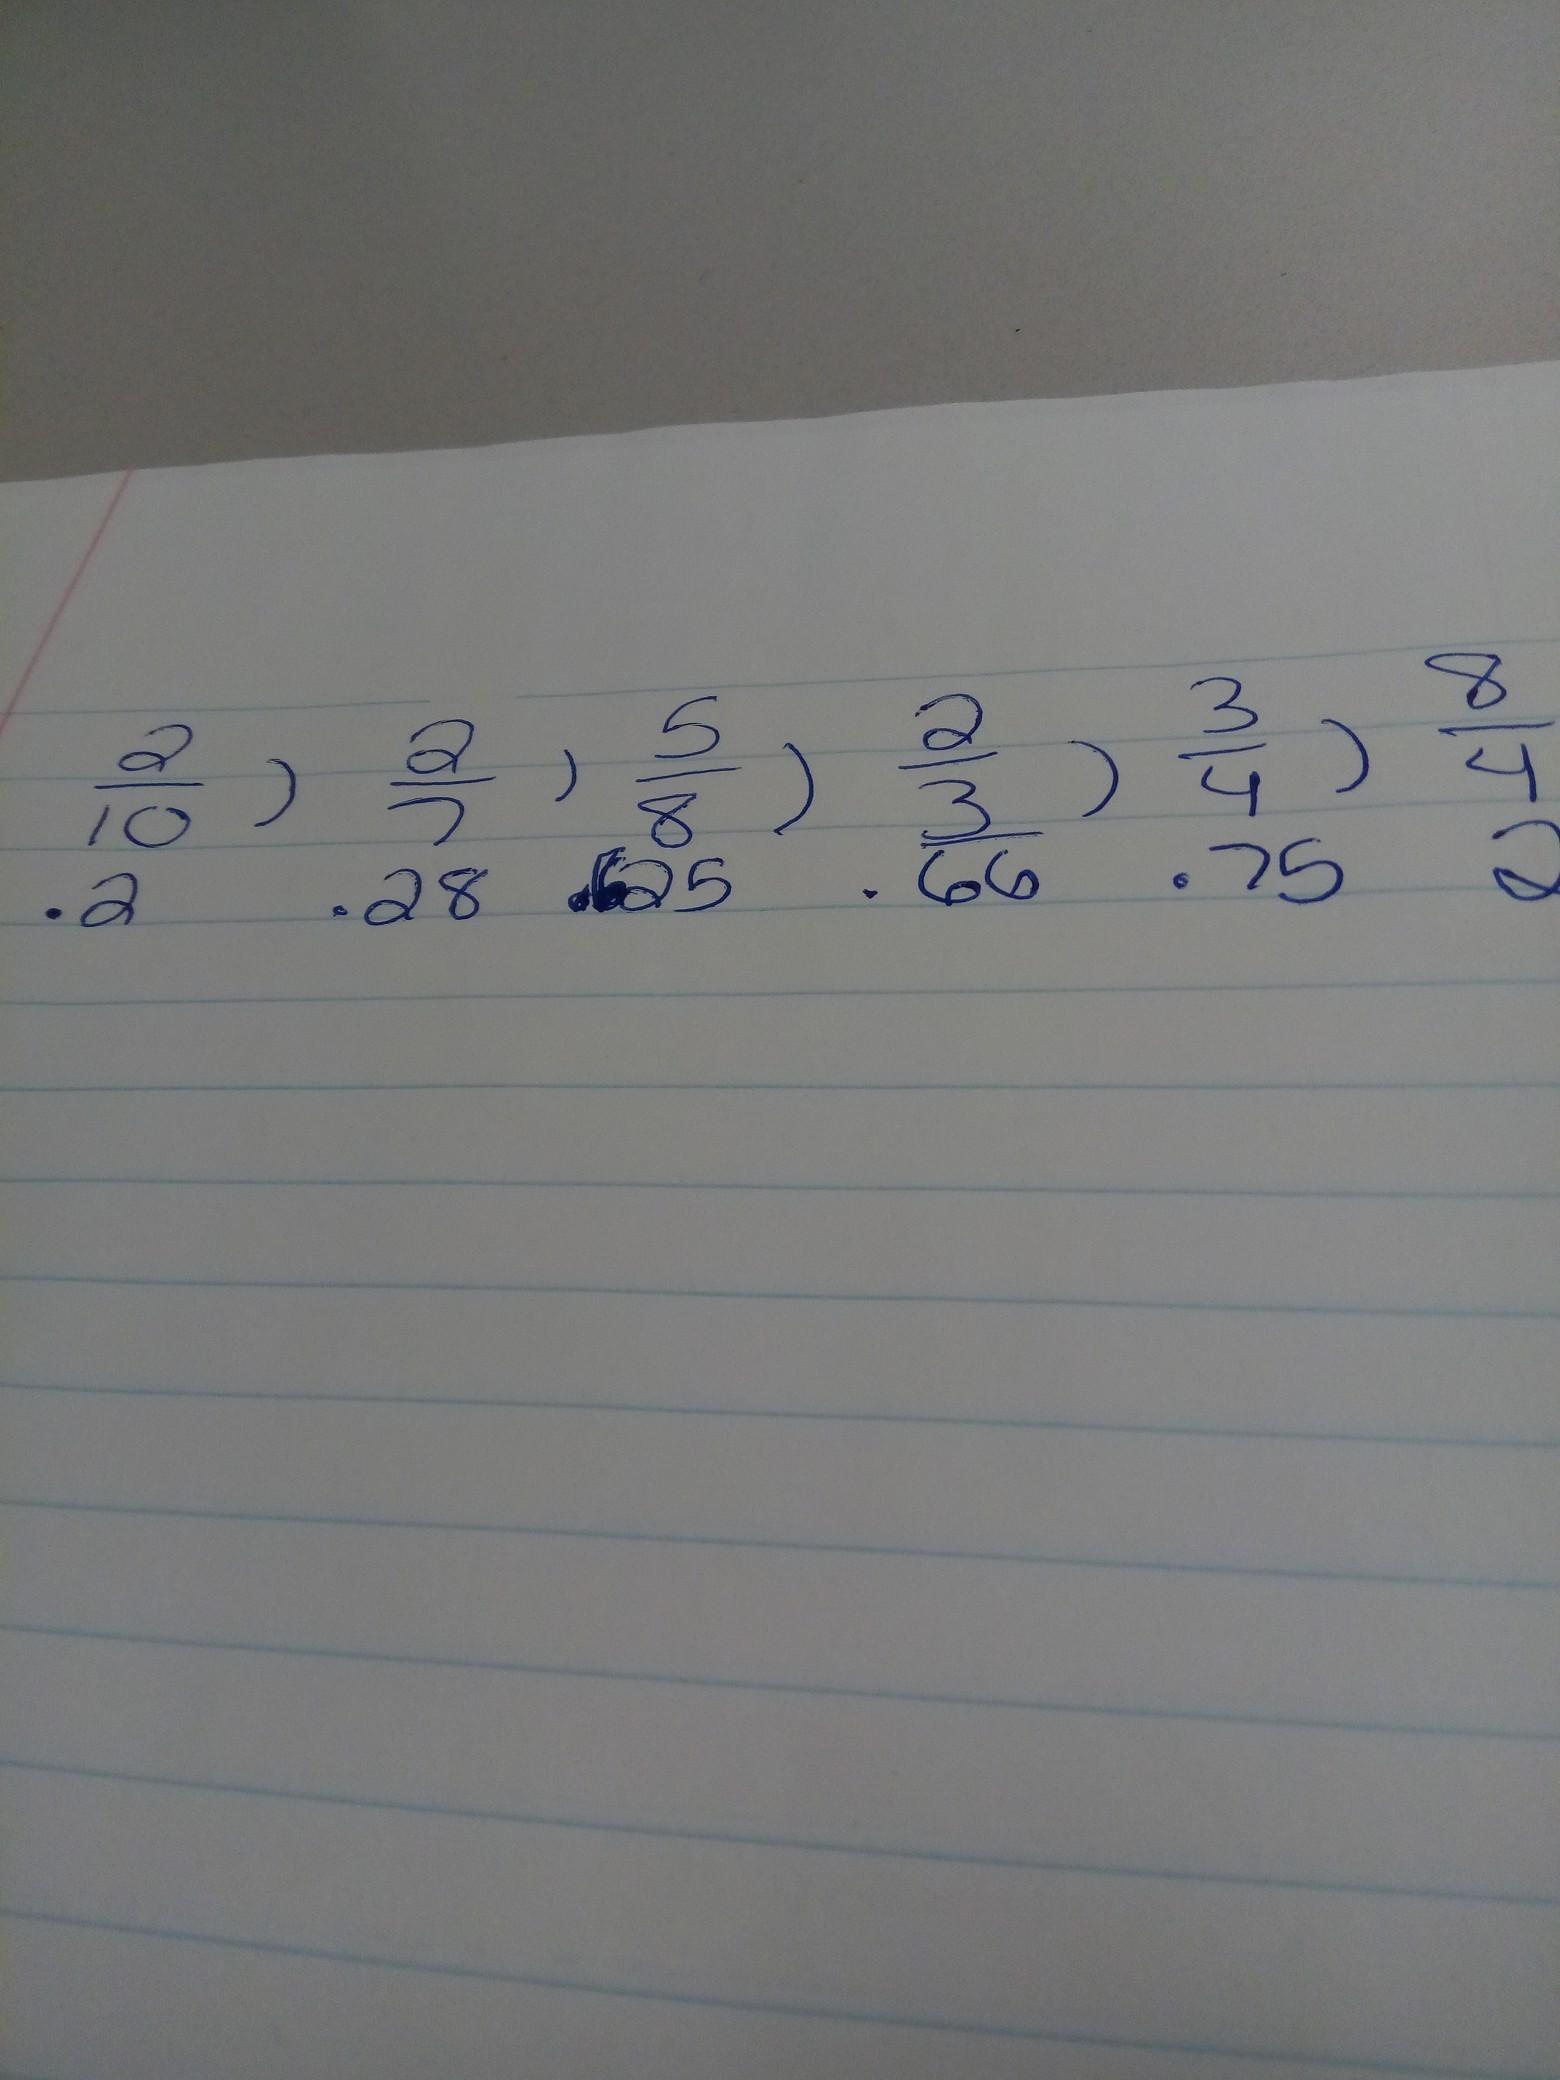 2/10, 2/7, 5/8, 2/3, 3/4, 8/4
.2 .28 .625 .66 .75 2